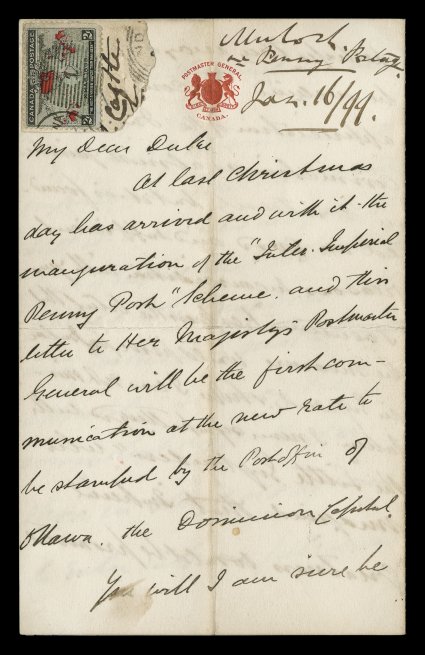 CANADA POSTAGE
2c
Mulock
re Penny Postage
POSTMASTER GENERAL.
CANADA.
Jan. 16/99.
My Dear Duke
At last Christmas
day has arrived and with it the
inauguration of the "Inter-Imperial
Penny Post" Scheme. and this
letter to Her Majesty's Postmaster
General will be the first com-
munication at the new rate to
be stamped by the Postoffice of
Ottawa. the Dominion Capital.
You will I am sure be